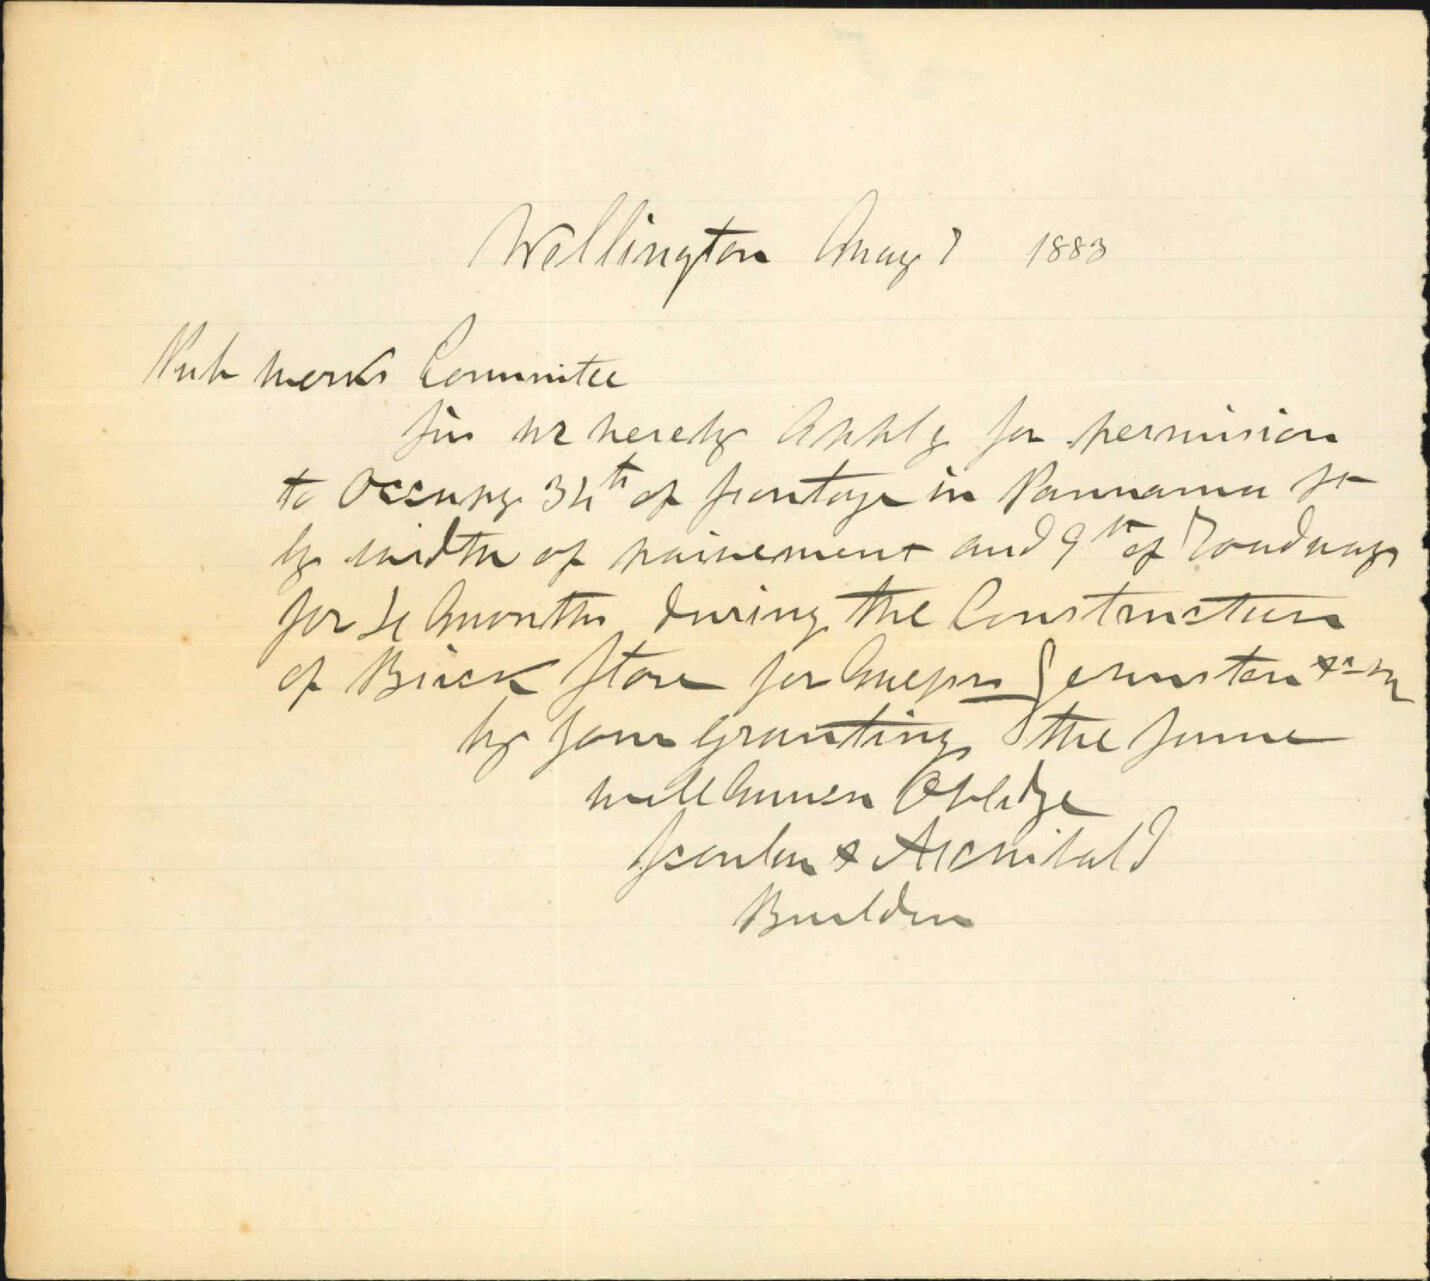 Wellington May 7 1883
Pub Works Committee
Sir we hereby Apply for permision
to Occupy 34 ft of frontage in Pannama St
by width of paivement and 9 ft of Roadway
for 4 Months during the Construction
of Brick Store for Messrs Jernston
by your granting the same
will Much Oblidge
Scoular & Archibald
Builders